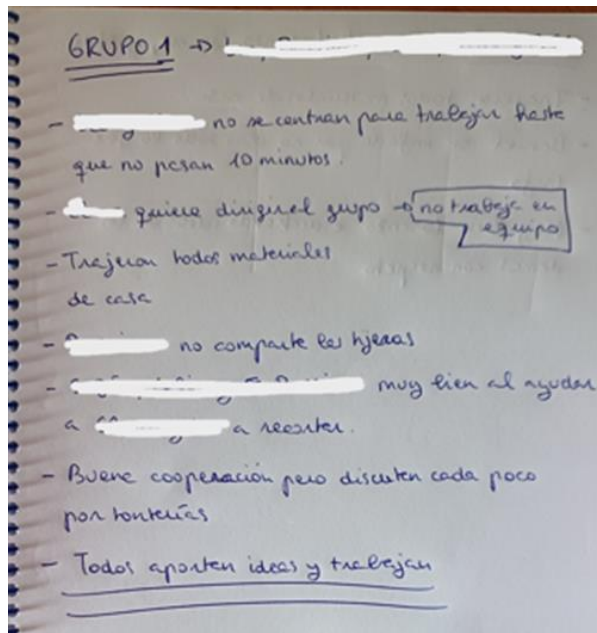 GRUPO 1 →
- no se centran para trabajar hasta
que no pasan 10 minutos.
- quiere dirigir el grupo → no trabaja en
equipo
- Trajeron todos materiales
de casa
- no comparte las tijeras
- muy bien al ayudar
a a recortar.
- Buena cooperación pero discuten cada poco
por tonterías
- Todos aportan ideas y trabajan